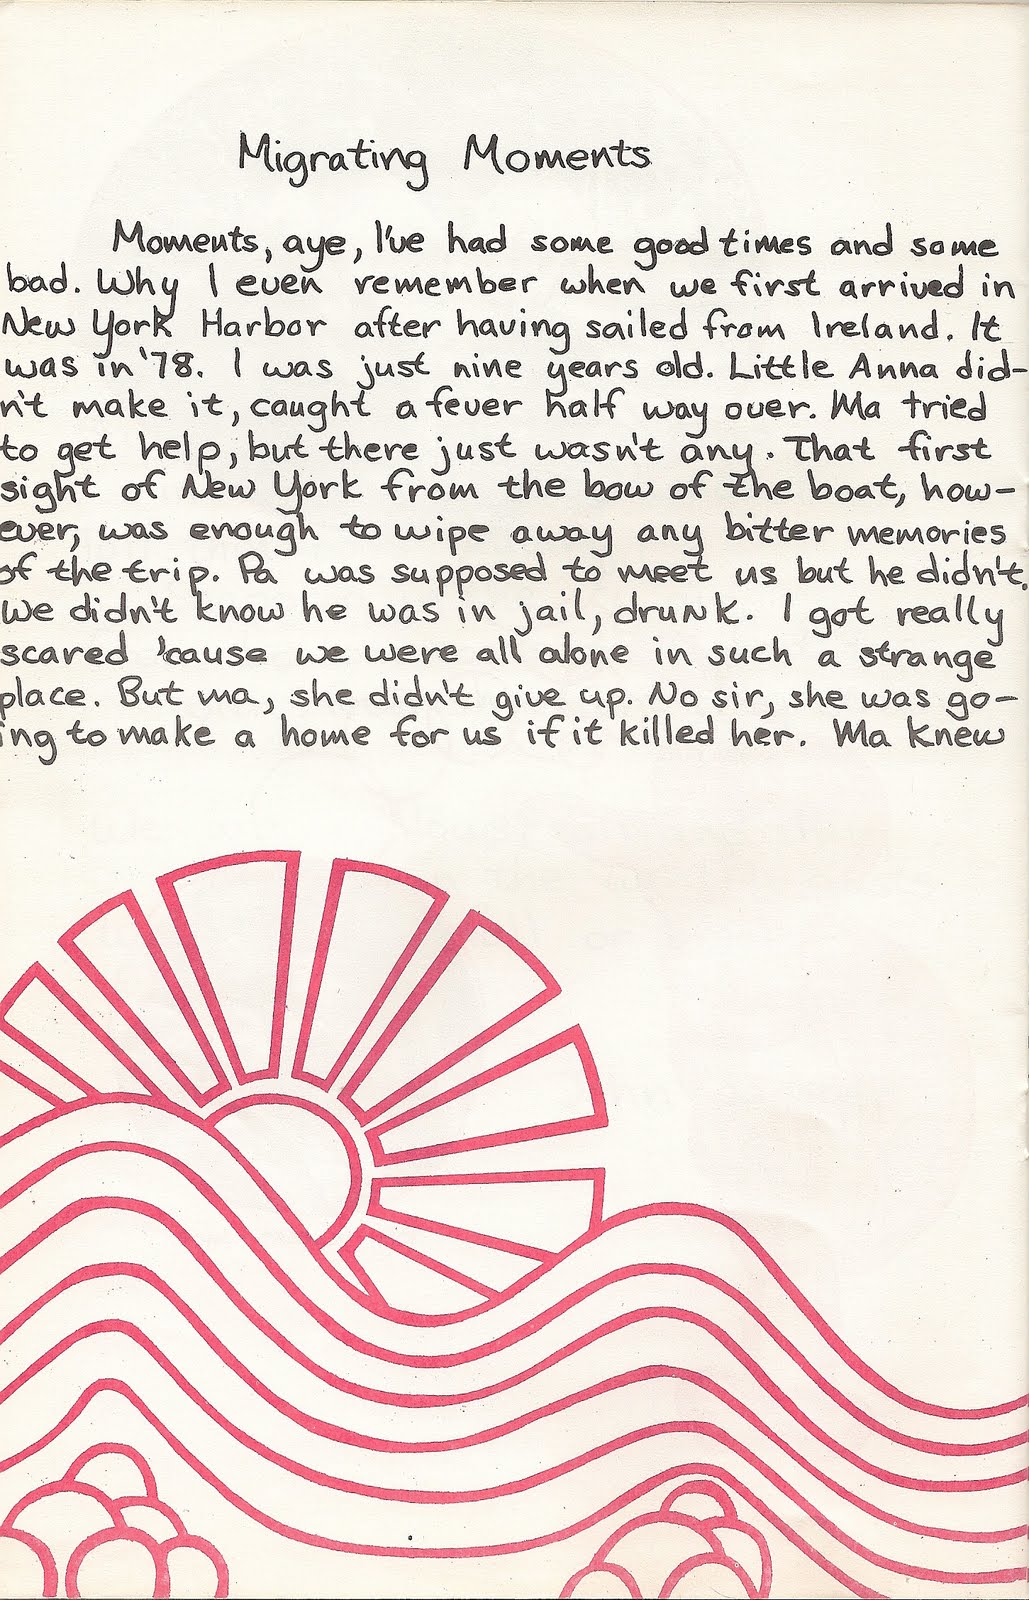 Migrating Moments
Moments, aye, I've had some good times and some
bad. Why I even remember when we first arrived in
New York Harbor after having sailed from Ireland. It
was in '78. I was just nine years old. Little Anna did-
n't make it, caught a fever half way over. Ma tried
to get help, but there just wasn't any. That first
sight of New York from the bow of the boat, how-
ever, was enough to wipe away any bitter memories
of the trip. Pa was supposed to meet us but he didn't.
We didn't know he was in jail, drunk. I got really
scared 'cause we were all alone in such a strange
place. But ma, she didn't give up. No sir, she was go-
ing to make a home for us if it killed her. Ma knew